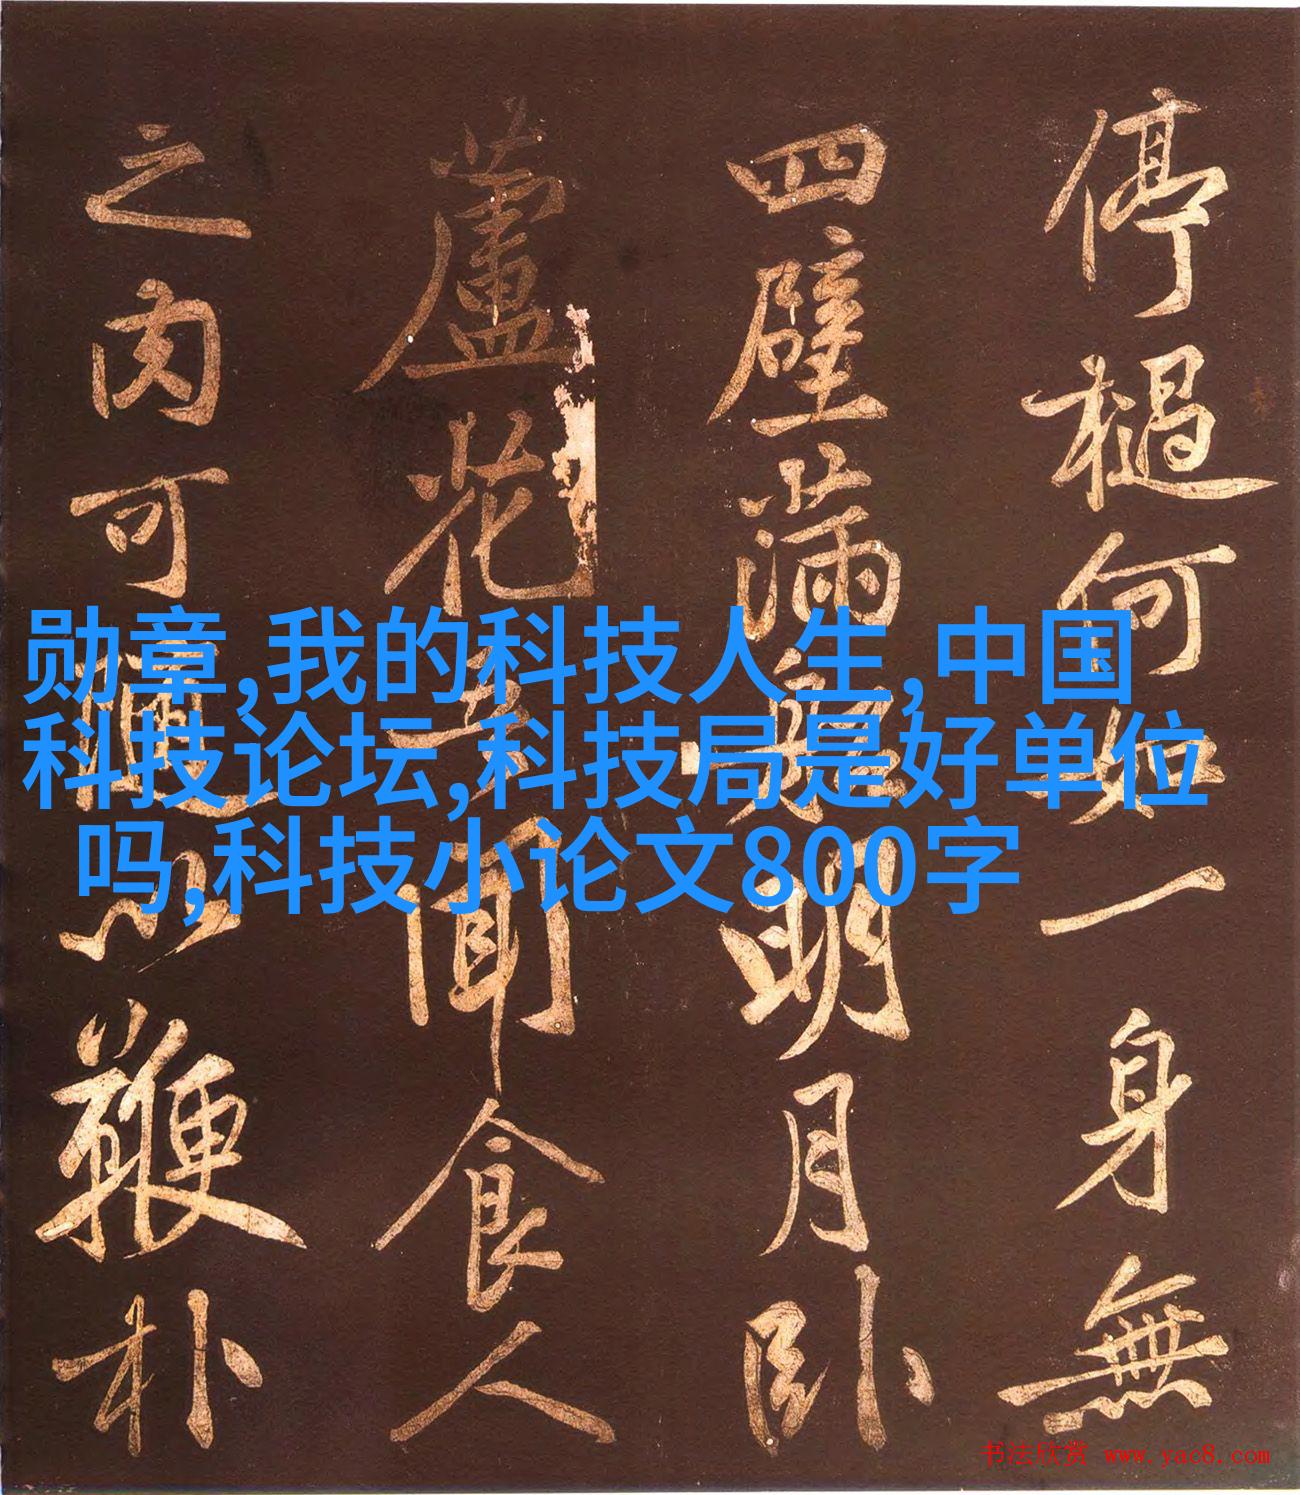 停檛何如一身無
四壁滿船明月卧
蘆花至聞食人
之肉可隨以鞭朴
勋章,我的科技人生,中国
科技论坛,科技局是好单位
吗,科技小论文800字
书法欣赏 www.yac8.com